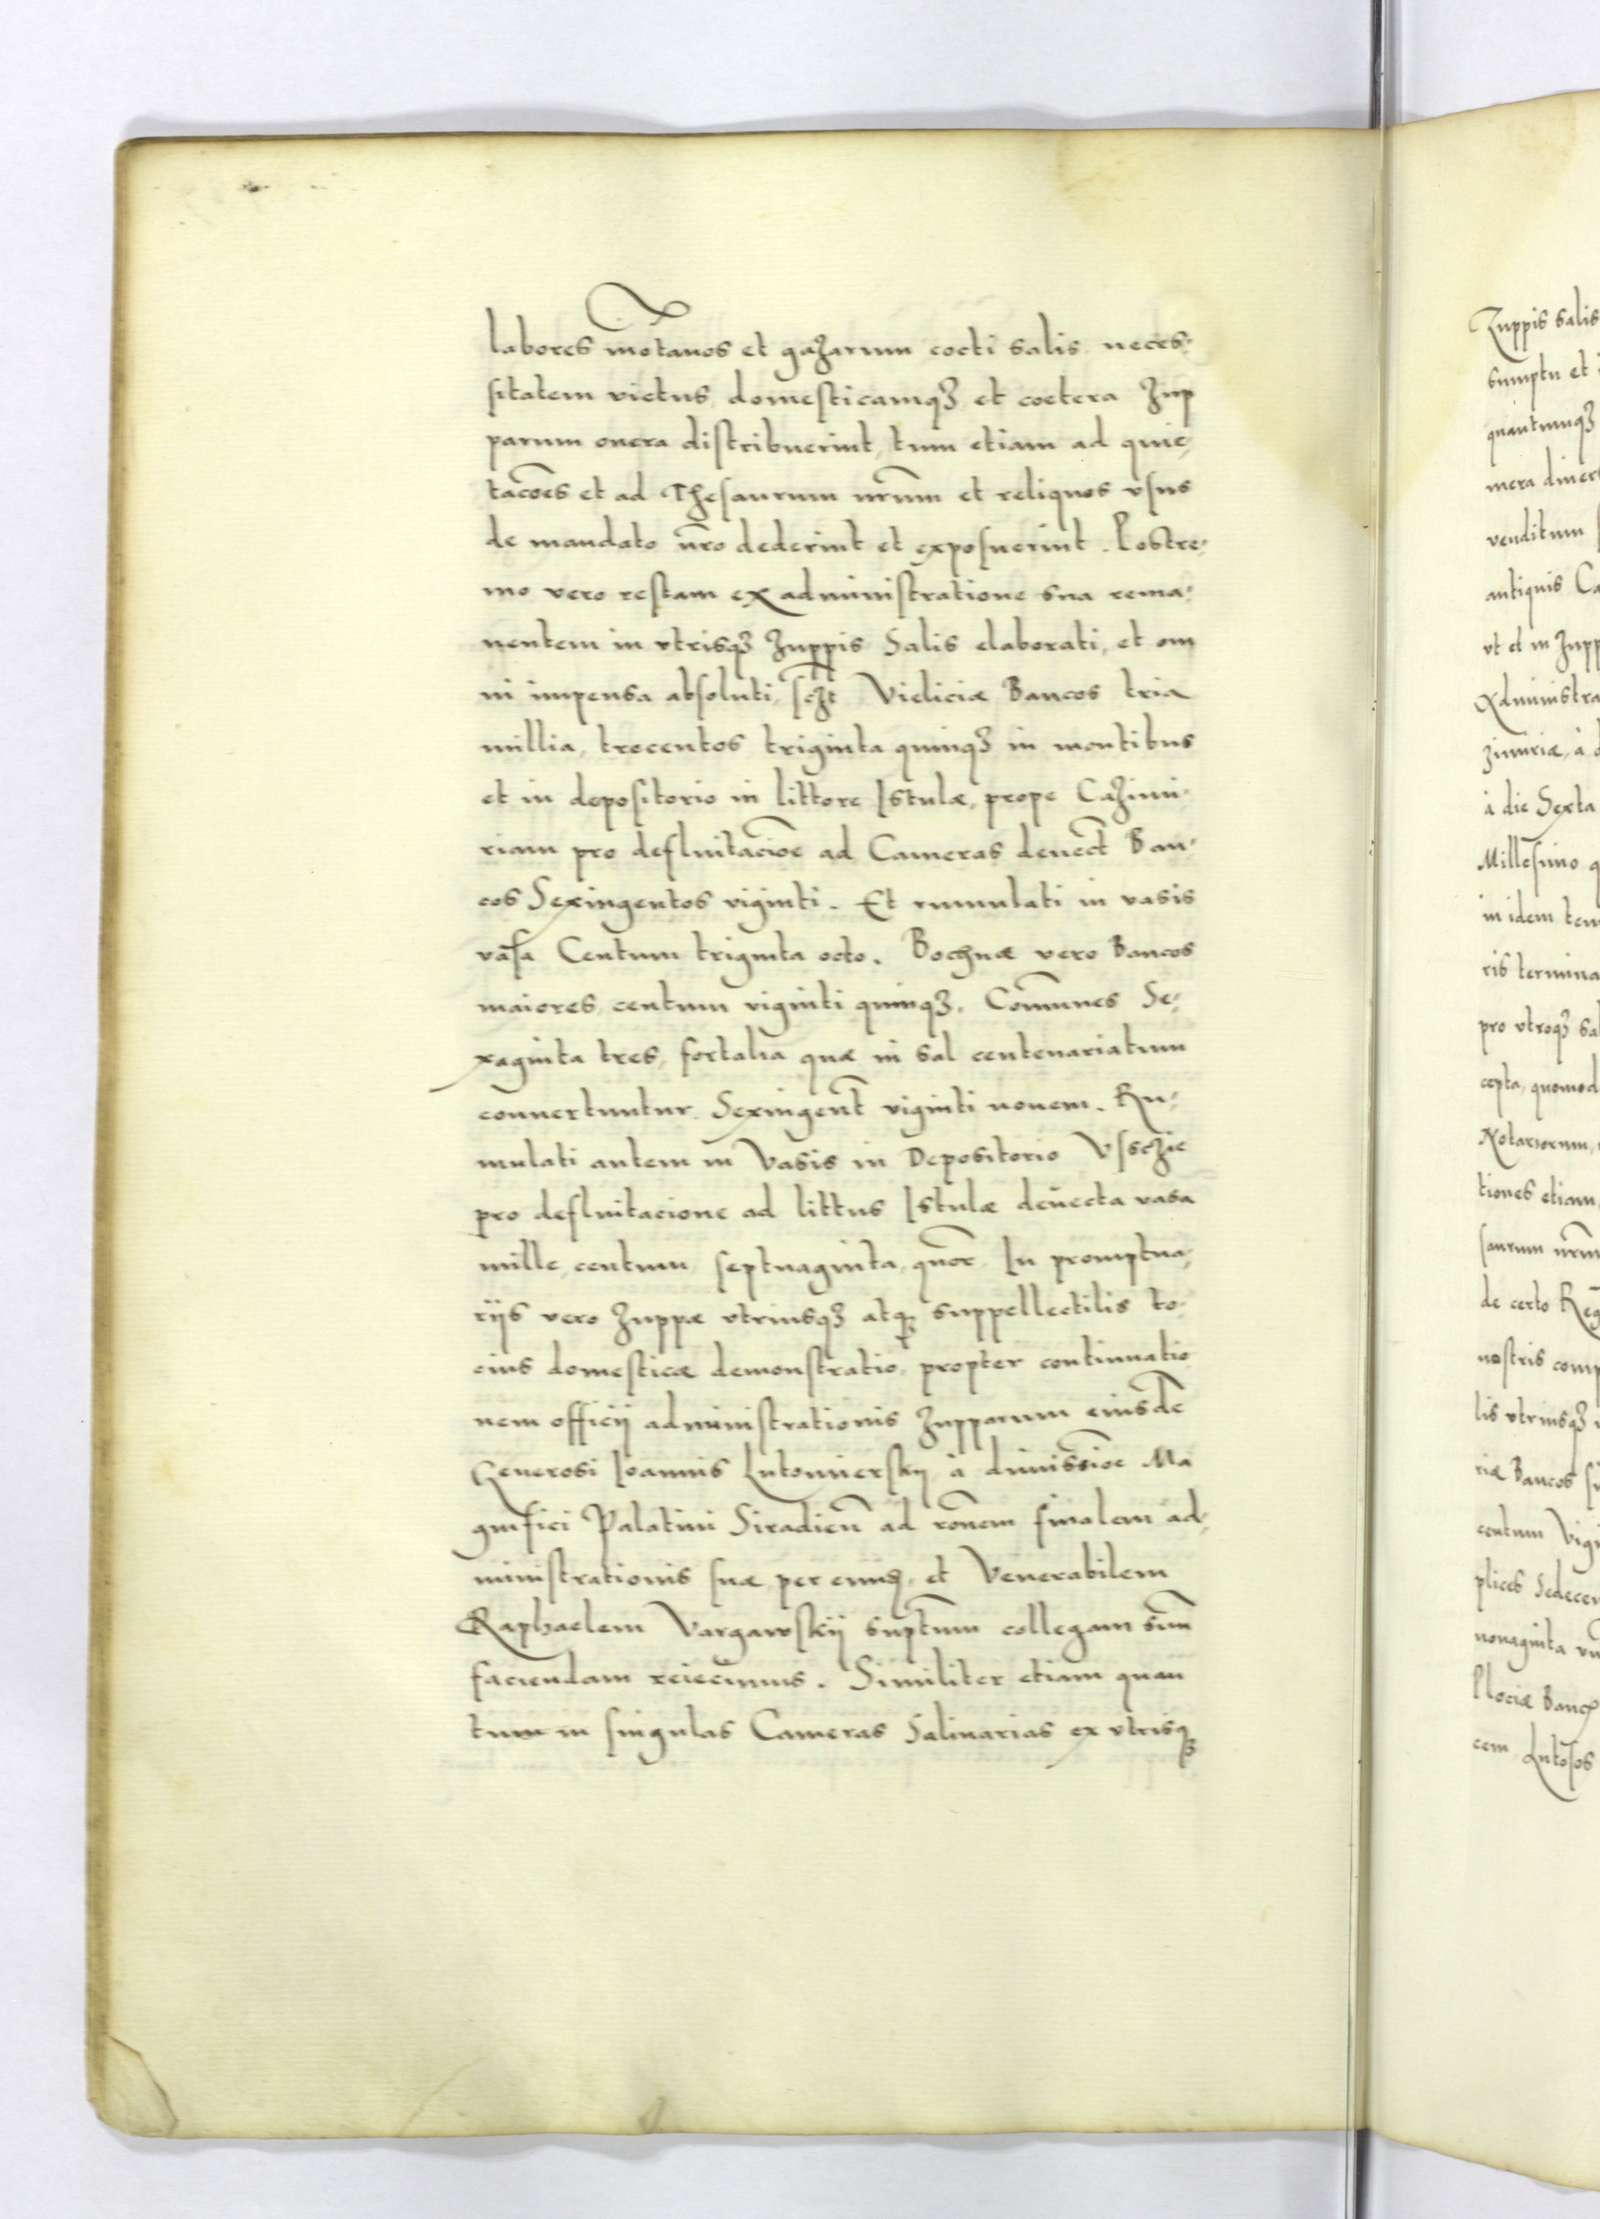 labores mōtanos et gazarum cocti salis neces-
sitatem victus domesticamqꝫ et coetera Zup
parum onera distribuerint, tum etiam ad quie-
tacōes et ad Thesaurum nr̄um et reliquos vsus
de mandato nr̄o dederint et exposuerint. Postre-
mo vero restam ex administratione sua rema-
nentem in vtrisqꝫ Zuppis Salis elaborati, et om
ni impensa absoluti, sczt Vieliciæ Bancos tria
millia, trecentos triginta quinqꝫ in montibus
et in depositorio in littore Istulæ, prope Cazimi-
riam pro defluitacīoe ad Cameras deuect̄ Ban-
cos Sexingentos viginti. Et rumulati in vasis
vasa Centum triginta octo. Bochnæ vero Bancos
maiores centum viginti quinqꝫ. Com̄unes Se-
xaginta tres, fortalia quæ in sal centenariatum
conuertuntur Sexingent̄ viginti nouem. Ru-
mulati autem in Vasis in Depositorio Vssczie
pro defluitacione ad littus Istulæ deuecta vasa
mille, centum septuaginta, quōr In promptua-
rijs vero Zuppæ vtriusqꝫ atqꝫ suppellectilis to-
cius domesticæ demonstratio, propter continuatio
nem officij administrationis Zupparum eiusdē
Generosi Ioannis Lutomierskij à dimissiōe Ma
gnifici Palatini Siradien̄ ad rōnem finalem ad-
ministrationis suæ per eum, et Venerabilem
Raphaelem Vargawskij supt̄um collegam suū
faciendam reiecimus. Similiter etiam quan
tum in singulas Cameras Salinarias ex vtrisqꝫ
Zuppis salis
sumptu et
quantumqꝫ
mera diuers
venditum
antiquis Ca
vt et in Zupp
Administra
zimiriæ, à d
à die Sexta
Millesimo q
in idem tem
ris termina
pro vtroqꝫ sal
cepta, quomod
Notariorum,
tiones etiam
saurum nr̄um
de certo Reg
nostris comp
lis vtriusqꝫ
riæ Bancos si
centum Vigi
plices Sedecem
nonaginta vn
Plociæ Banc
cem Lutosos